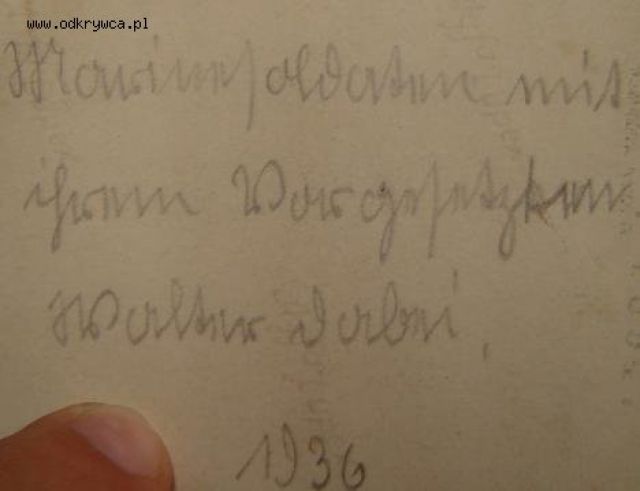 www.odkrywca.pl
Marinesoldaten mit
ihrem Vorgesetzten
Walter dabei,
1936